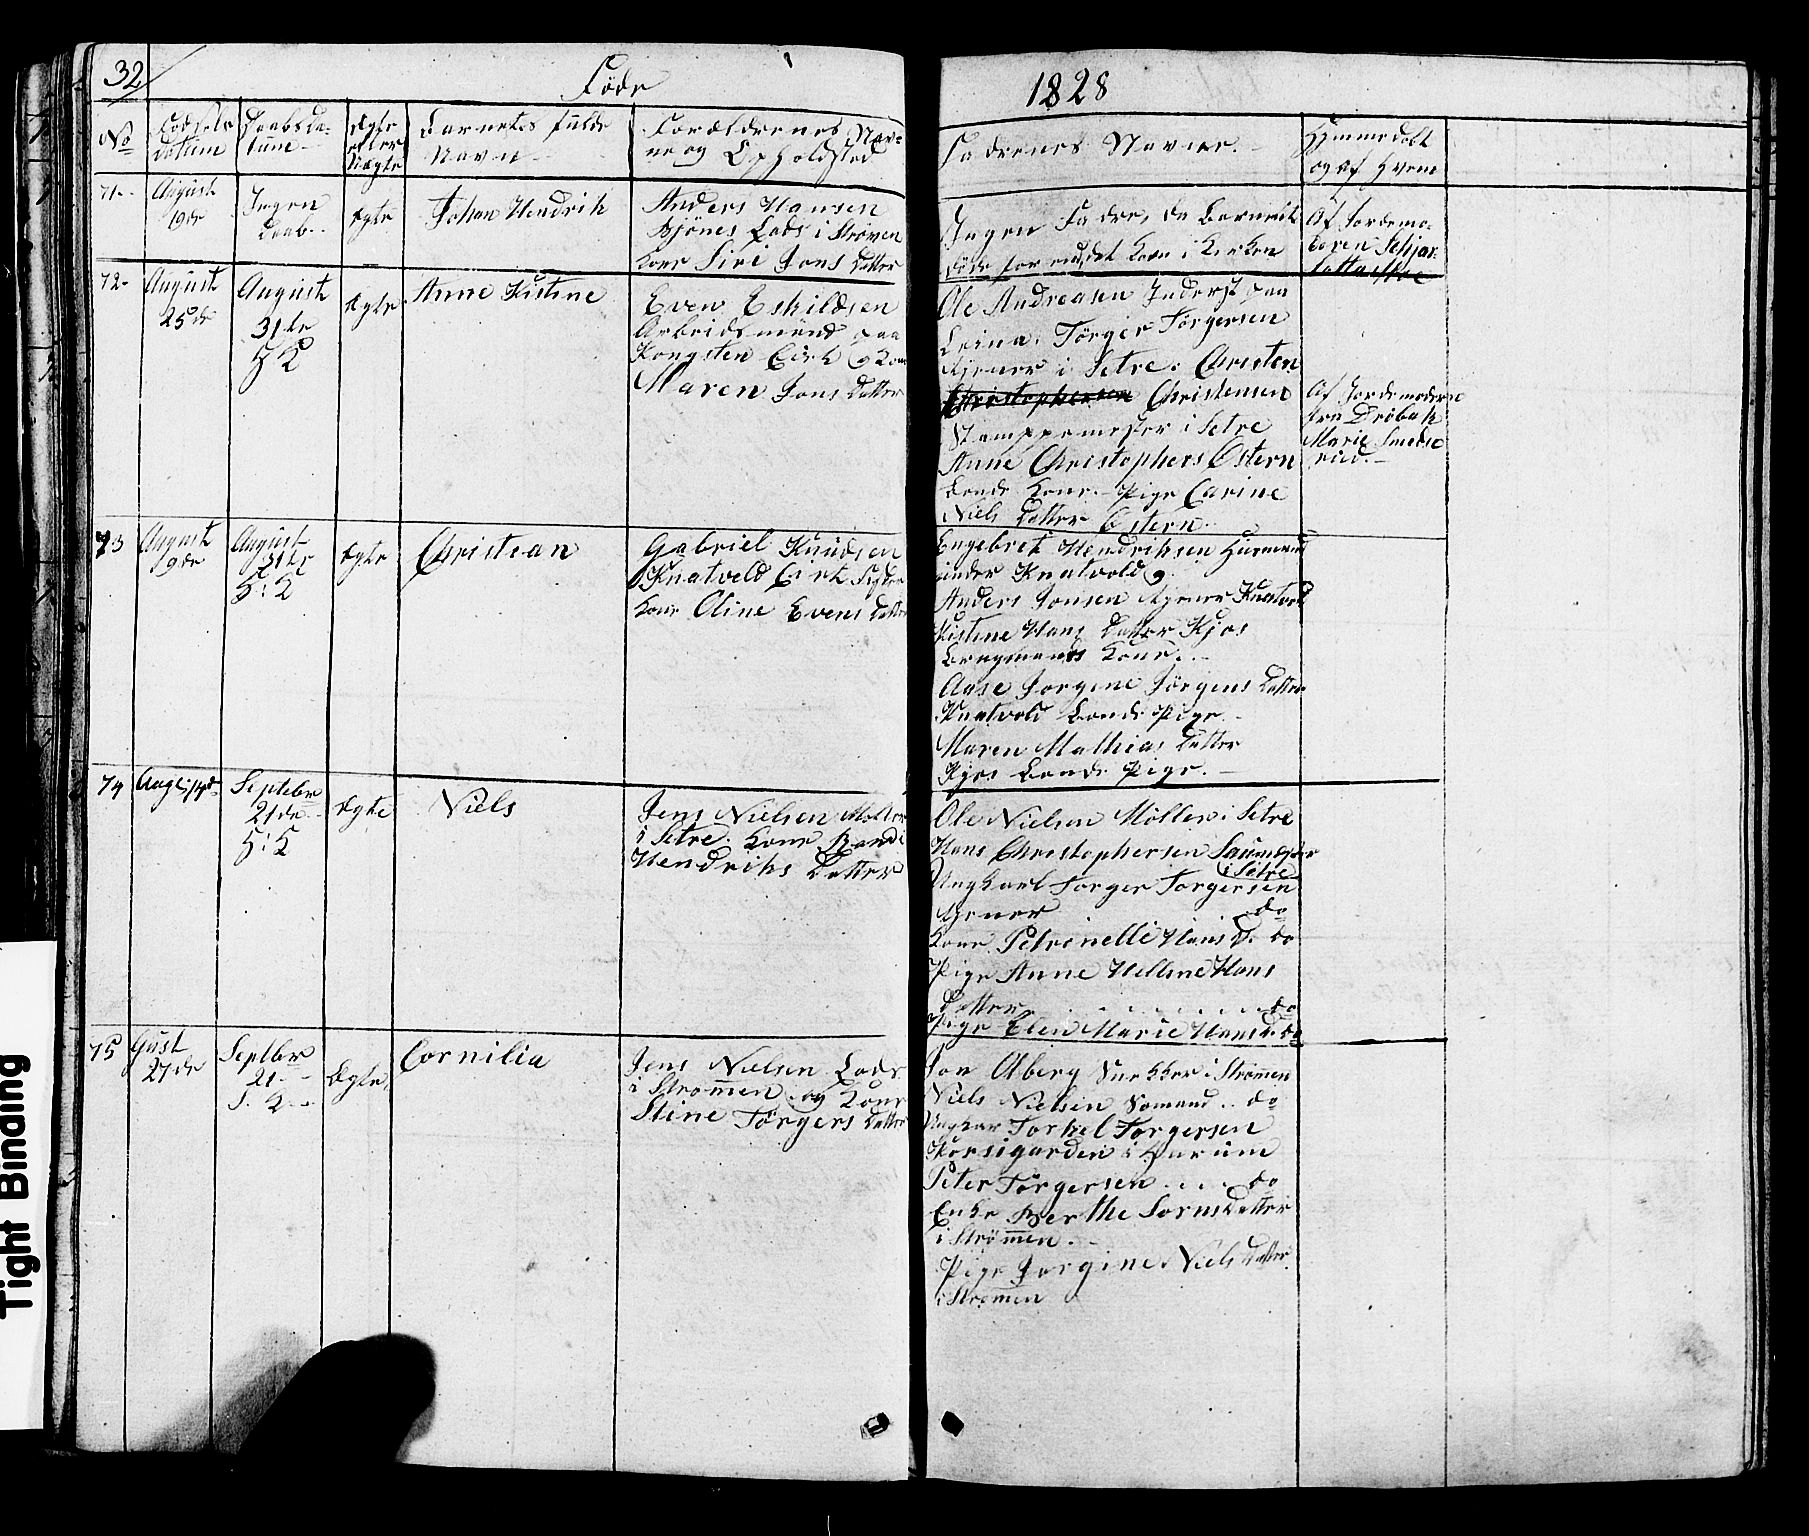 32
Føde
1828
No
Fødsels
Datum
Daabsda-
tum
Ægte
eller
Uægte
Barnets fulde
Navn
Forældrenes Nav-
ne og Opholdsted
Fadrenes Navne.
Hjemmedøbt
og af Hvem
71
August
19de
Ingen
Daab
Ægte
Johan Hendrik
Anders Hansen
Lods i Strømen
Kone Siri Jons Datter
Ingen Fadre, da Barnet
døde forend det kom i Kirken
Af Jordemo-
72
August
25de
August
31te
Ægte
Anne Kistine
Even Eskildsen
Arbeidsmand paa
Kongsten Kone
Maren Jons Datter
Ole Andreasen Inderst paa
Leina. Törger Törgersen
tjener i Setre. Christen
Christophersen Christensen
Stampemester i Setre
Anne Christophers Östern
Bonde Kone. Pige Carine
Niels Datter Östern
Af Jordemoderen
fra Drøbak
Marie Smeds-
rud.
73
August
9de
August
31te
Ægte
Christian
Gabriel Knudsen
Knatvold
Kone Oline Evens Datter
Engebret Hendriksen Husmand
under Knatvold
Anders Jonsen tjener Knatvold
Kistine Hans Datter Kjos
Kone.
Aase Jorgine Jörgens Datter
Knatvold Bonde Pige.
Maren Mathias Datter
Kjos Bonde Pige.
74
Septebr
21de
Ægte
Niels
Jens Nielsen Möller
i Setre. Kone Randi
Hendriks Datter
Ole Nielsen Möller i Setre
Hans Christophersen
i Setre
Ungkarl Torger Torgersen
tjener do
Kone Petronelle Hans D. do
Pige Anne Helline Hans
Datter do
Pige Elen Marie Hans D. do
75
Gust
27de
Septbr
21
Ægte
Cornilia
Jens Nielsen Lods
i Strømmen og Kone
Stine Törgers Datter
Jon Åberg Snekker i Strømmen
Niels Nielsen Sömand do
Ungkar Torkel Torgersen
i Hurum
Peter Törgersen do
Enke Berthe Datter
i Strømmen.
Pige Jorgine Niels Datter
i Strømmen
Tight Binding